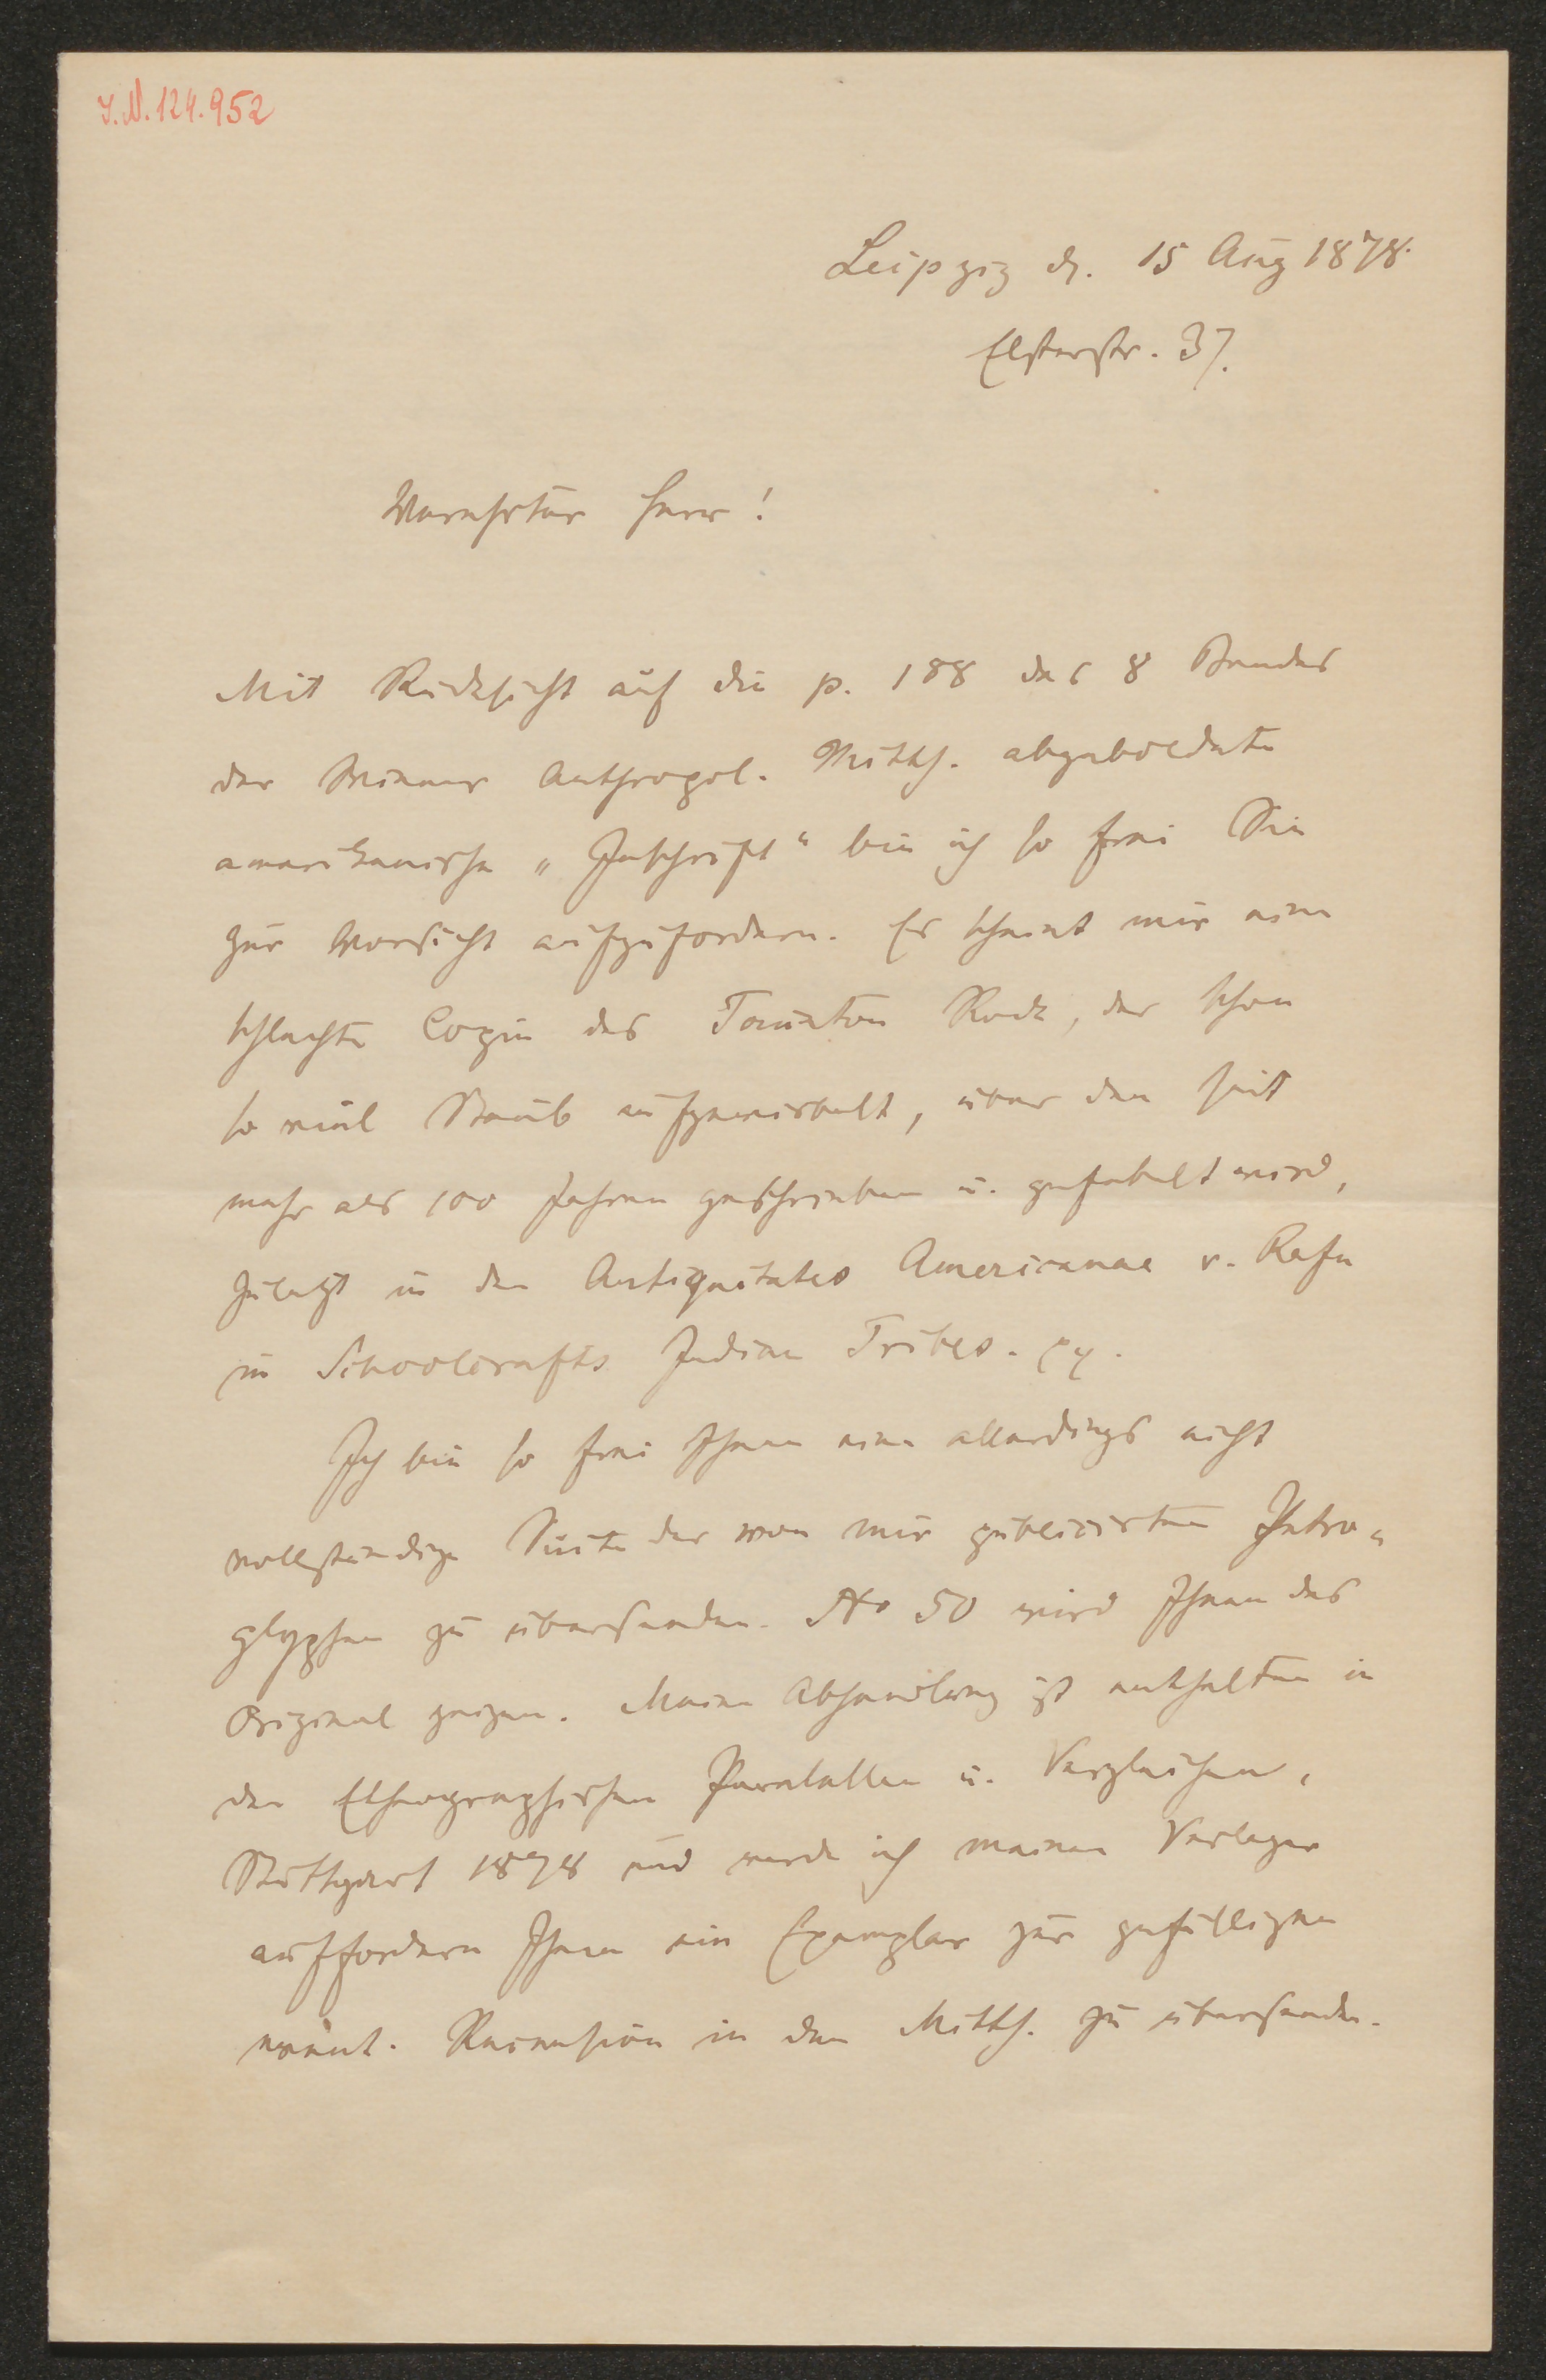 I.N. 124.952
Leipzig d. 15 Aug 1878.
Elsterstr. 37.
Verehrter Herr!
Mit Rücksicht auf die p. 188 des 8 Bandes
der Wiener Anthropol. Mitth. abgebildete
amerikanische „Inschrift“ bin ich so frei Sie
zur Vorsicht aufzufordern. Es scheint mir eine
schlechte Copie des Taunton Rock, der schon
so viel Staub aufgewirbelt, über den seit
mehr als 100 Jahren geschrieben u. gefabelt wird,
zuletzt in den Antiquitates Americanae v. Rafn
in Schoolcrafts Indian Tribes.
Ich bin so frei Ihnen eine allerdings nicht
vollständige Suite der von mir publicirten Petro-
glyphen zu übersenden. No 50 wird Ihnen das
Original zeigen. Meine Abhandlung ist enthalten in
den Ethnographischen Parallelen u. Vergleichen,
Stuttgart 1878 und werde ich meinen Verleger
auffordern Ihnen ein Exemplar zur gefälligen
event. Recension in den Mitth. zu übersenden.